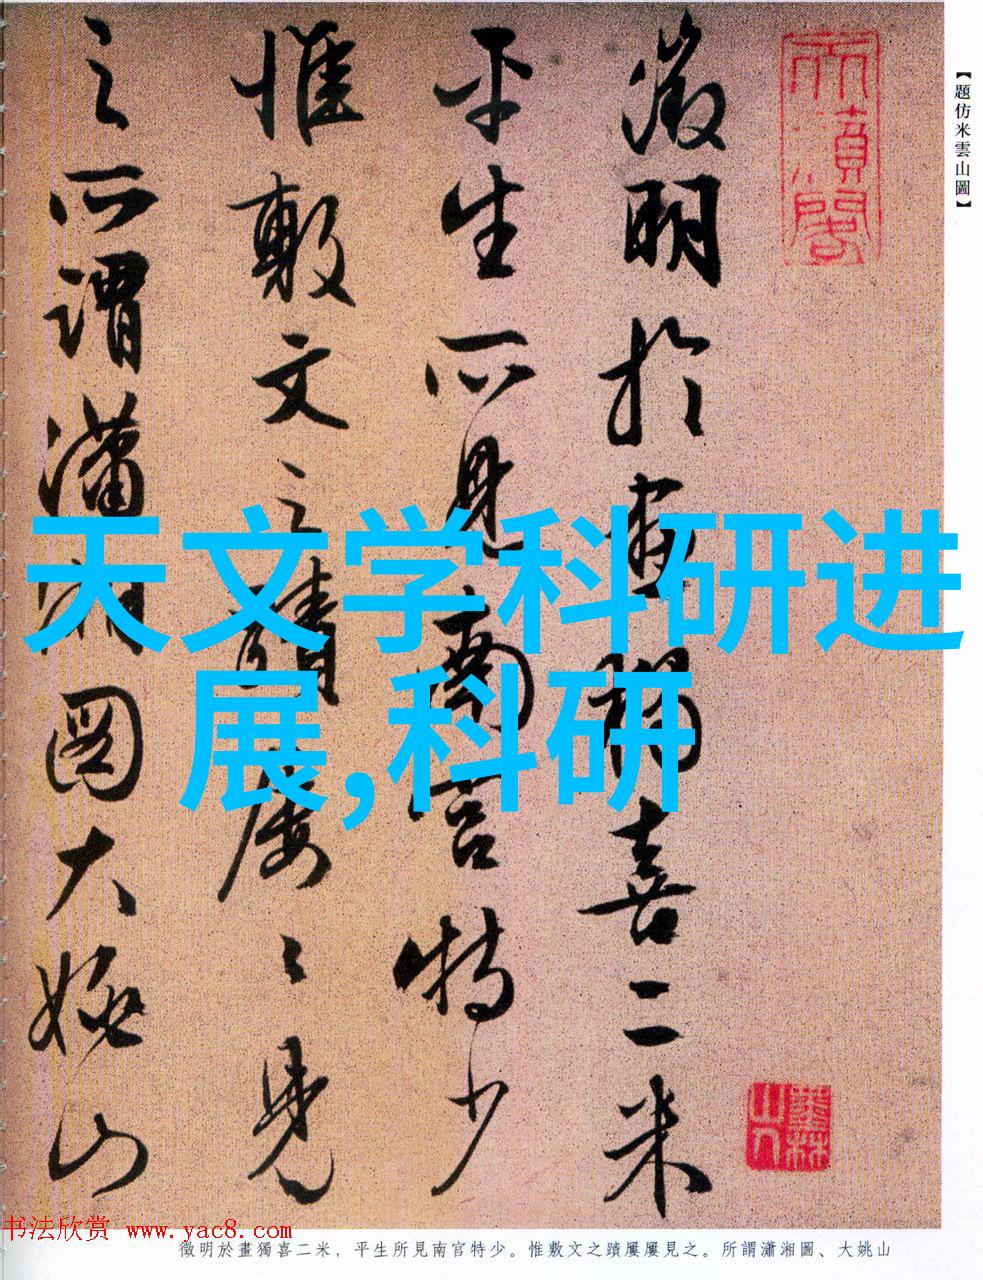 【題仿米雲山圖】
徵明於畫獨喜二米
平生所見南宫特少
惟敷文之蹟屢〻見
之所謂瀟湘圖大姚山
墨林山人
天文学科研进
展,科研
书法欣赏 www.yac8.com
徵明於畫獨喜二米，平生所見南官特少。惟敷文之蹟屢屢見之。所謂瀟湘圖、大姚山